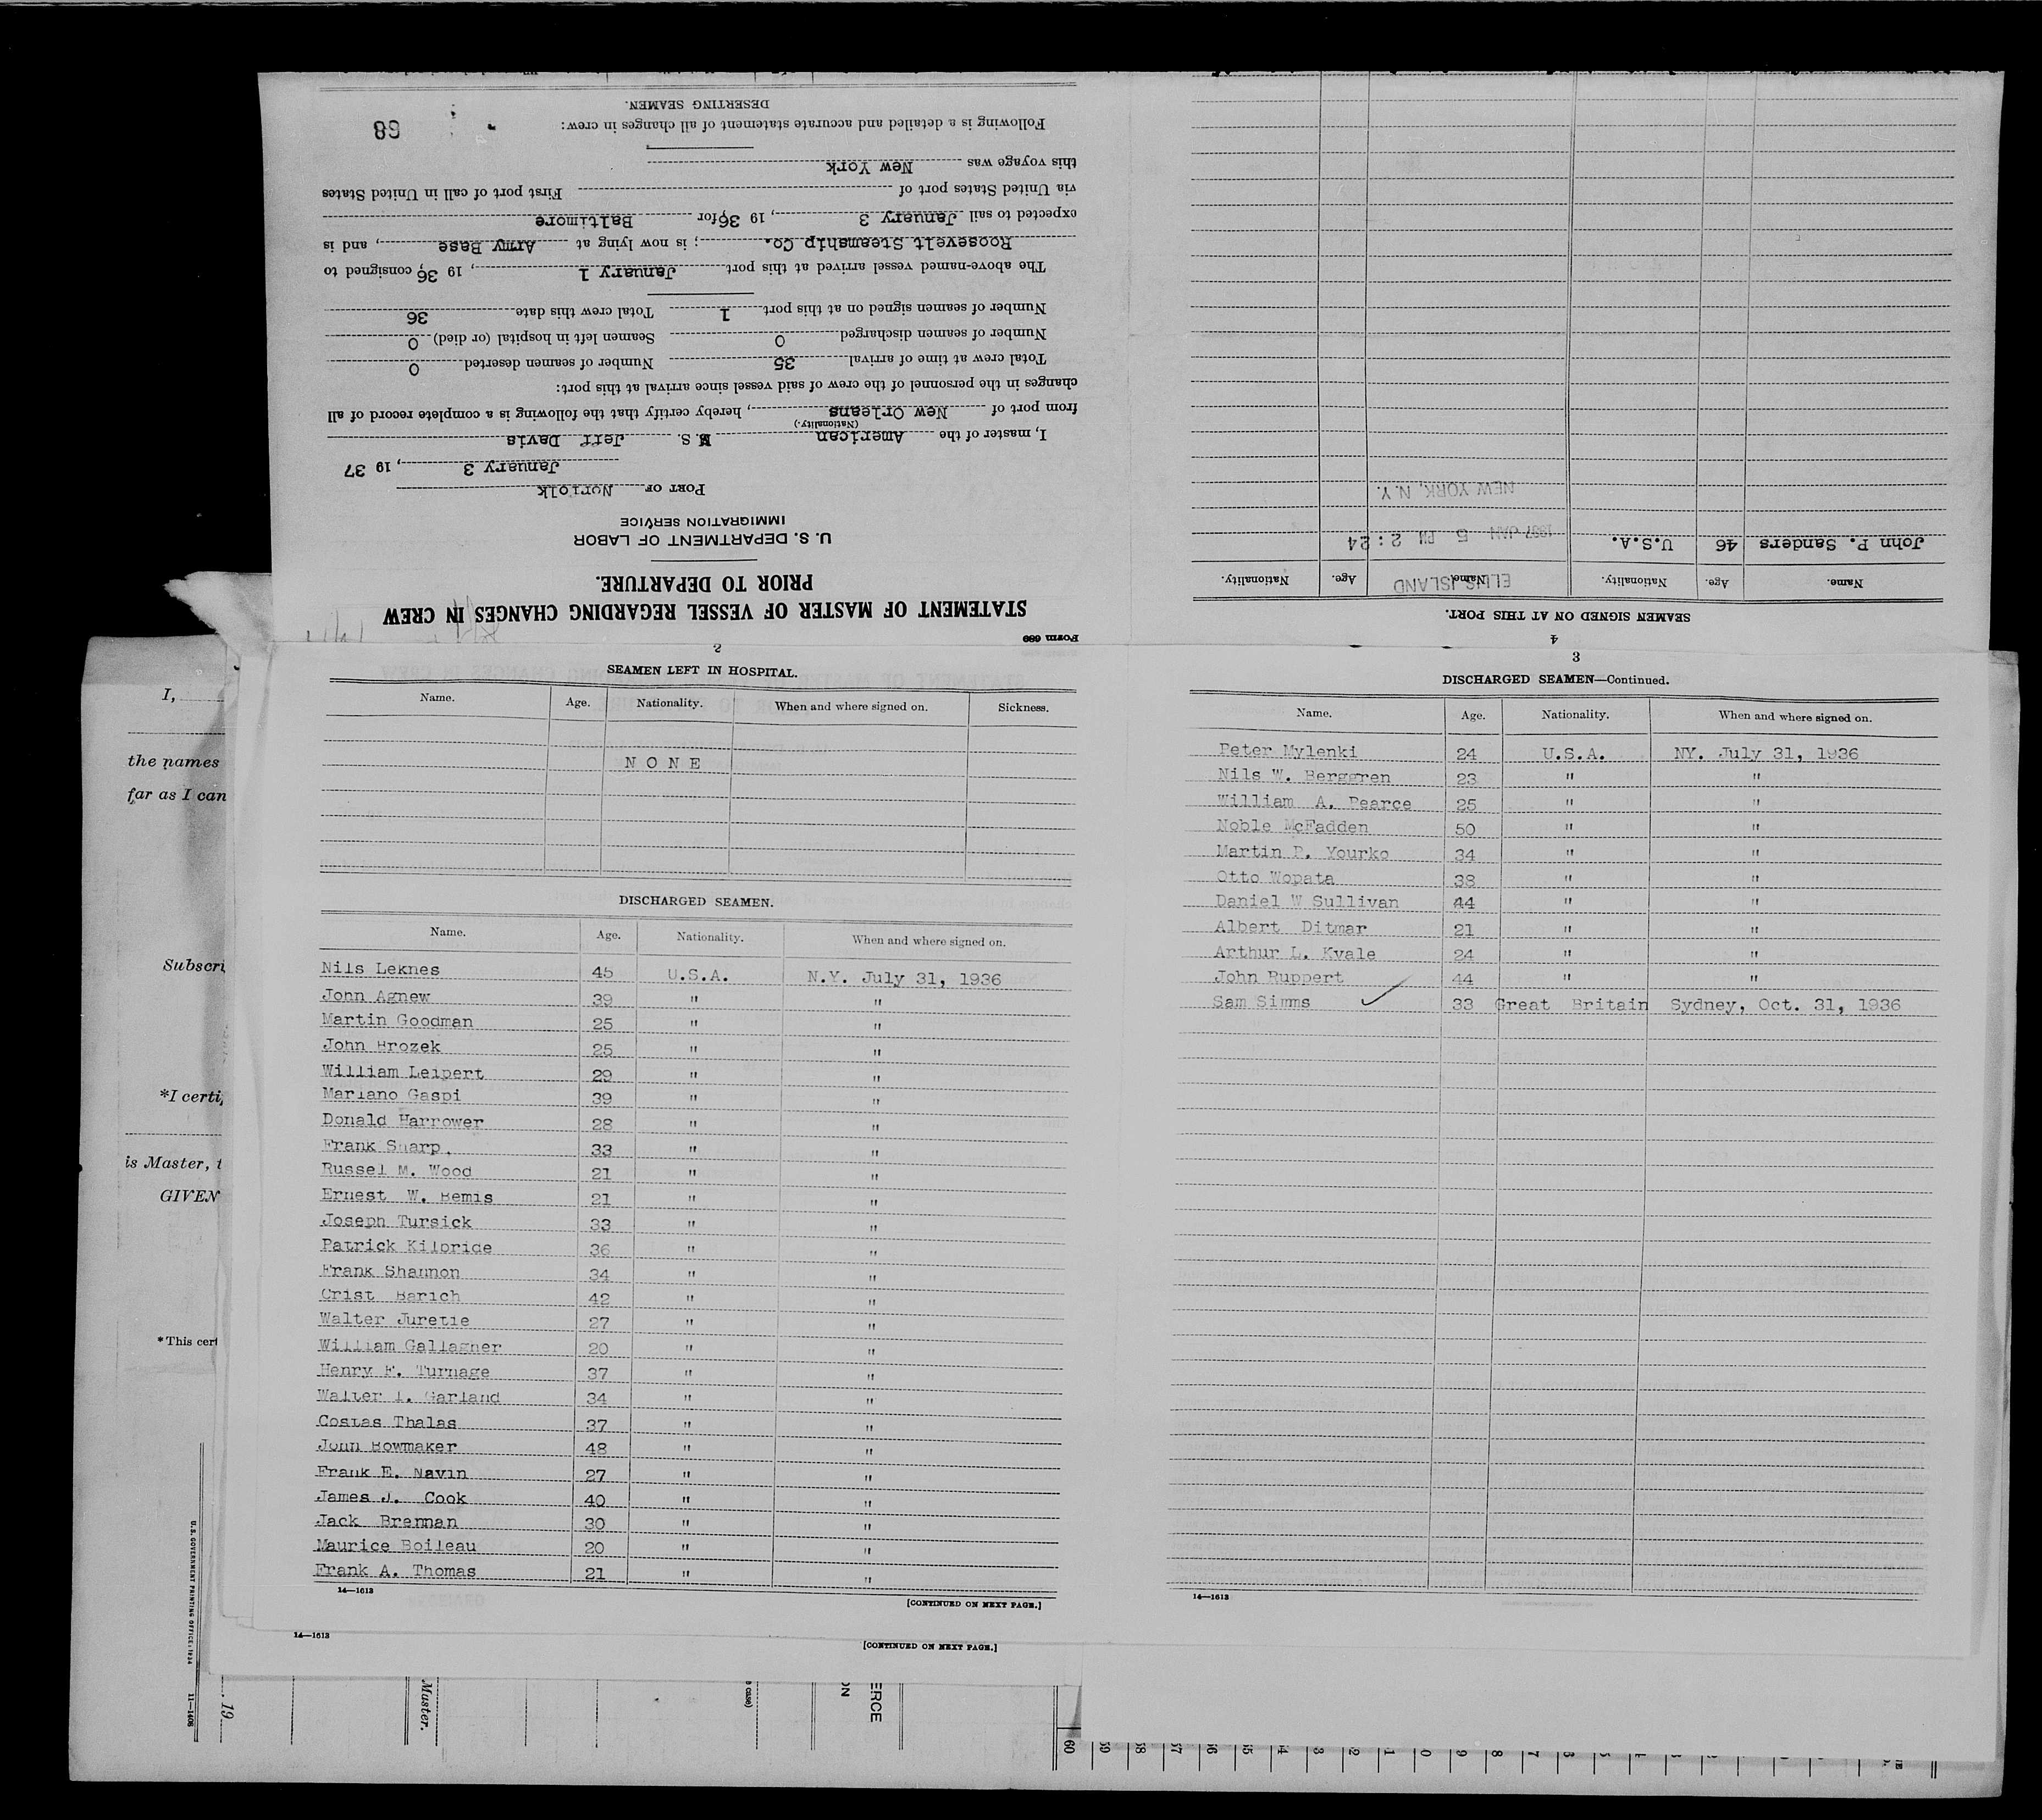 Form 689
STATEMENT OF MASTER OF VESSEL REGARDING CHANGES IN CREW
PRIOR TO DEPARTURE.
U. S. DEPARTMENT OF LABOR
IMMIGRATION SERVICE
PORT OF Norfolk
January 3, 19 37
I, master of the American S. S. Jeff Davis
(Nationality.)
from port of New Orleans, hereby certify that the following is a complete record of all
changes in the personnel of the crew of said vessel since arrival at this port:
Total crew at time of arrival 35 Number of seamen deserted 0
Number of seamen discharged 0 Seamen left in hospital (or died) 0
Number of seamen signed on at this port 1 Total crew this date 36
The above-named vessel arrived at this port January 1, 19 36, consigned to
Roosevelt Steamship Co.; is now lying at Army Base, and is
expected to sail January 3, 19 36 for Baltimore
via United States port of First port of call in United States
this voyage was New York
Following is a detailed and accurate statement of all changes in crew:
DESERTING SEAMEN.
68
4
SEAMEN SIGNED ON AT THIS PORT.
Name. Age. Nationality. Name. Age. Nationality.
ELLIS ISLAND
John P. Sanders 46 U.S.A.
1937 JAN 5 PM 2:24
NEW YORK, N.Y.
2
SEAMEN LEFT IN HOSPITAL.
Name. Age. Nationality. When and where signed on. Sickness.
NONE
DISCHARGED SEAMEN.
Name. Age. Nationality. When and where signed on.
Nils Leknes 45 U.S.A. N.Y. July 31, 1936
John Agnew 39 " "
Martin Goodman 25 " "
John Hrozek 25 " "
William Leipert 29 " "
Mariano Gaspi 39 " "
Donald Harrower 28 " "
Frank Sharp. 33 " "
Russel M. Wood 21 " "
Ernest W. Bemis 21 " "
Joseph Tursick 33 " "
Patrick Kilbride 36 " "
Frank Shannon 34 " "
Crist Barich 42 " "
Walter Juretie 27 " "
William Gallagher 20 " "
Henry F. Turnage 37 " "
Walter Garland 34 " "
Costas Thalas 37 " "
John Bowmaker 48 " "
Frank E. Navin 27 " "
James J. Cook 40 " "
Jack Brennan 30 " "
Maurice Boileau 20 " "
Frank A. Thomas 21 " "
14—1613
[CONTINUED ON NEXT PAGE.]
14—1613
[CONTINUED ON NEXT PAGE.]
3
DISCHARGED SEAMEN—Continued.
Name. Age. Nationality. When and where signed on.
Peter Mylenki 24 U.S.A. NY. July 31, 1936
Nils W. Berggren 23 " "
William A. Pearce 25 " "
Noble McFadden 50 " "
Martin P. Yourko 34 " "
Otto Wopata 38 " "
Daniel W Sullivan 44 " "
Albert Ditmar 21 " "
Arthur L. Kvale 24 " "
John Ruppert 44 " "
Sam Simms 33 Great Britain Sydney, Oct. 31, 1936
14—1613
I,
the names
far as I can
Subscri
*I certi
is Master, t
GIVEN
*This cert
U.S. GOVERNMENT PRINTING OFFICE: 1934
11—1408
19
Master.
case)
ON
ERCE
60 59 58 57 56